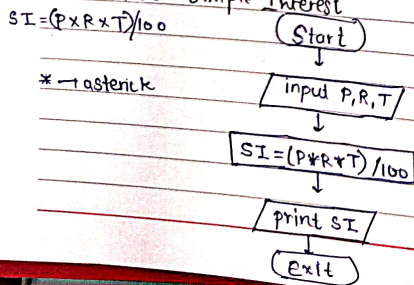 Simple Interest
SI=(P×R×T)/100
Start
* → asterick
input P,R,T
SI=(P*R*T)/100
print SI
exit